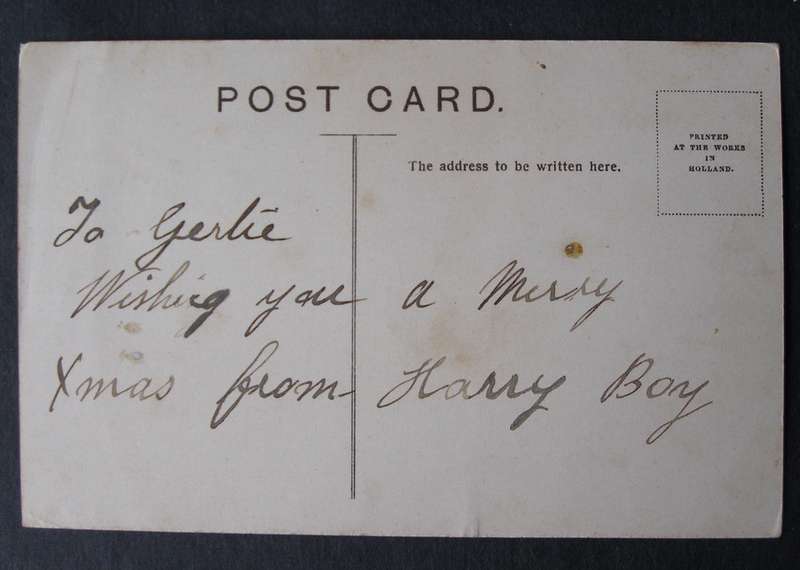 POST CARD.
The address to be written here.
PRINTED
AT THE WORKS
IN
HOLLAND.
To Gertie
Wishing you a Merry
Xmas from Harry Boy